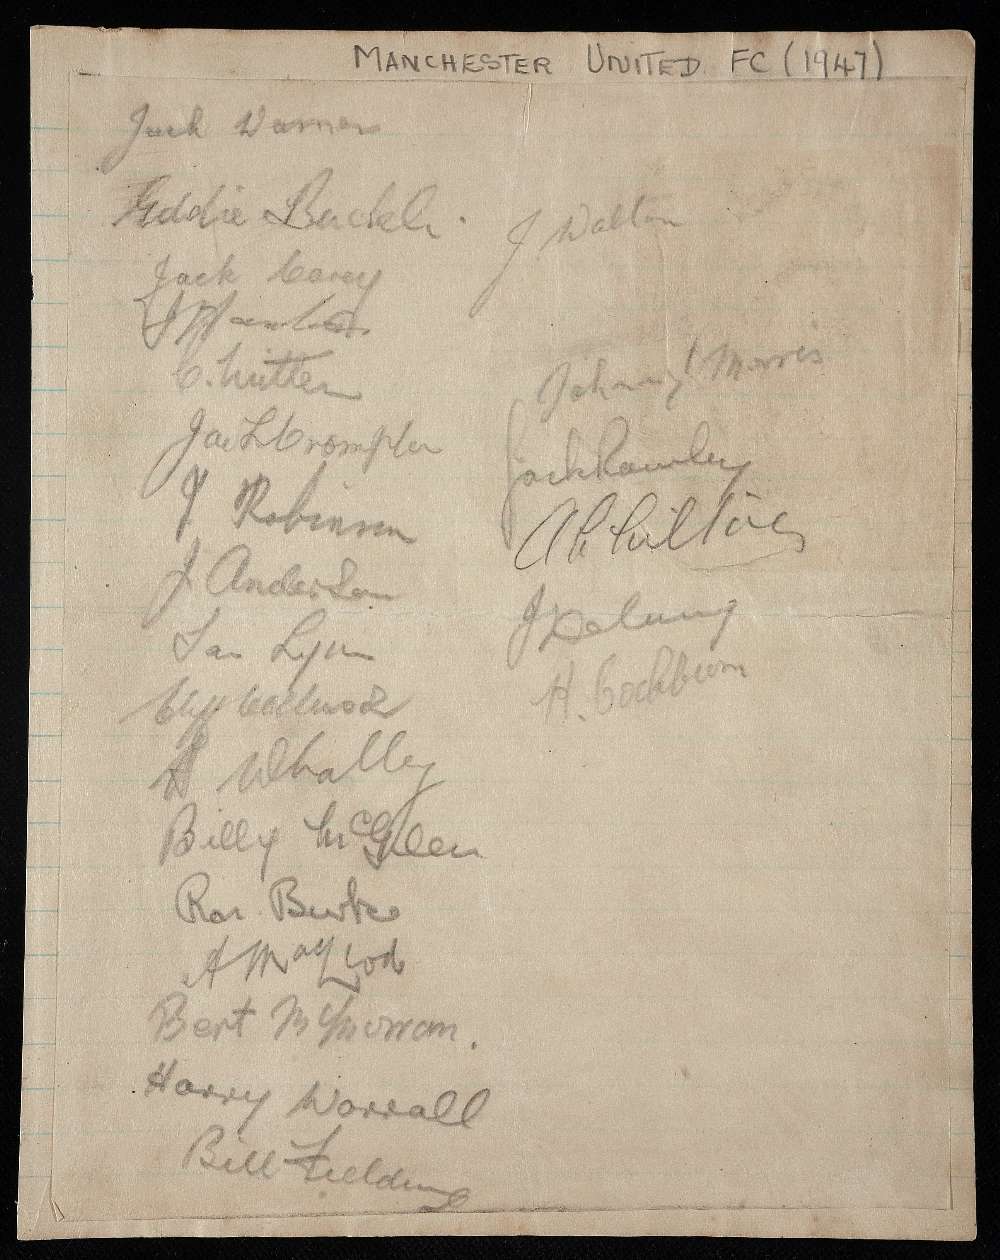 MANCHESTER UNITED FC (1947)
Jack Warner
Eddie Buckle.
J Walton
Jack Carey
J Hanlon
C. Mitten
Johnny Morris
Jack Crompton
Jack Rowley
J Robinson
A Chilton
J Anderson
J Delaney
Sam Lynn
H. Cockburn
Cliff Collinson
A Whalley
Billy McGlen
Ron Burke
Bert
Harry Worrall
Bill Fielding